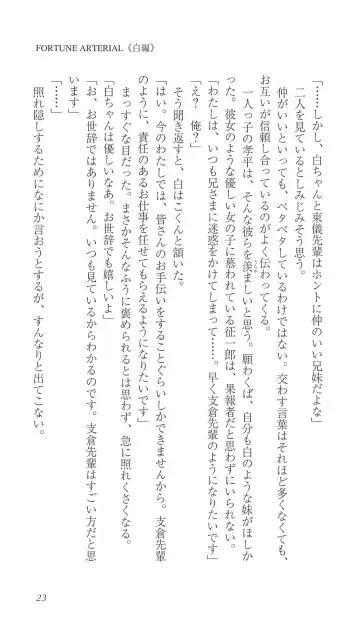 FORTUNE ARTERIAL《白編》
「……しかし、白ちゃんと東儀先輩はホントに仲のいい兄妹だよな」
二人を見ているとしみじみそう思う。
仲がいいといっても、ベタベタしているわけではない。交わす言葉はそれほど多くなくても、
お互いが信頼し合っているのがよく伝わってくる。
一人っ子の孝平は、そんな彼らを羨ましいと思う。願わくば、自分も白のような妹がほしか
った。彼女のような優しい女の子に慕われている征一郎は、果報者だと思わずにいられない。
「わたしは、いつも兄さまに迷惑をかけてしまって……。早く支倉先輩のようになりたいです」
「え？　俺？」
そう聞き返すと、白はこくんと頷いた。
「はい。今のわたしでは、皆さんのお手伝いをすることぐらいしかできませんから。支倉先輩
のように、責任のあるお仕事を任せてもらえるようになりたいです」
まっすぐな目だった。まさかそんなふうに褒められるとは思わず、急に照れくさくなる。
「白ちゃんは優しいなあ。お世辞でも嬉しいよ」
「お、お世辞ではありません。いつも見ているからわかるのです。支倉先輩はすごい方だと思
います」
「……」
照れ隠しするためになにか言おうとするが、すんなりと出てこない。
23